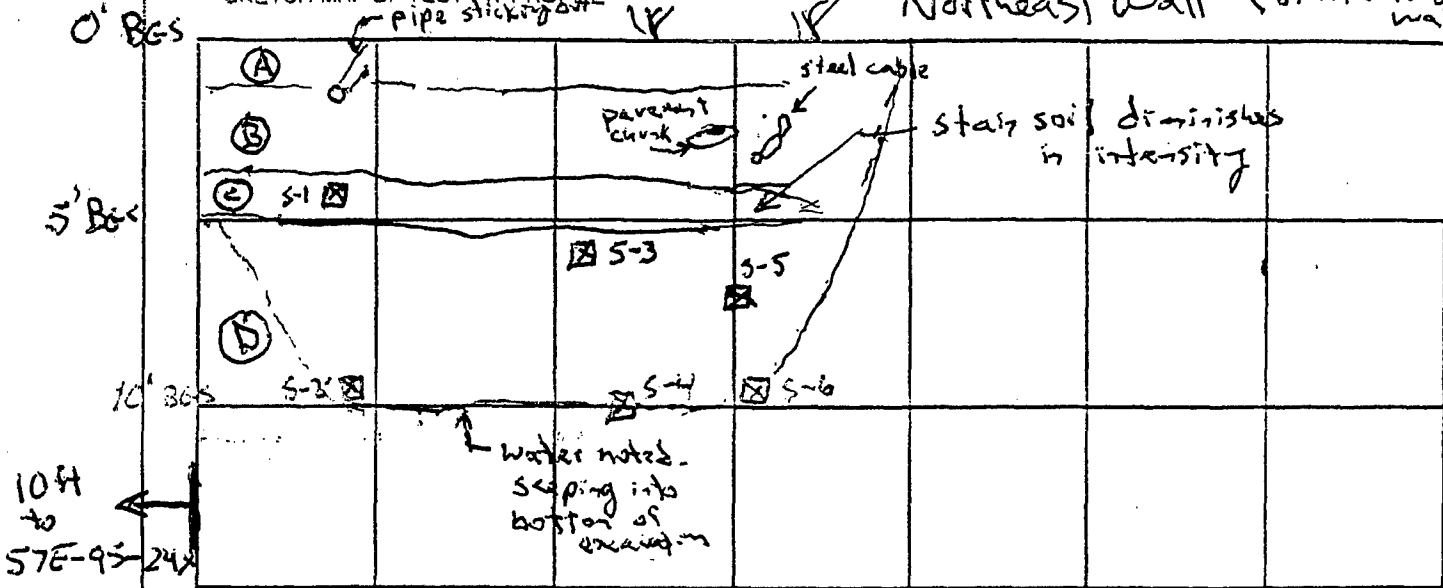 pipe sticking out
Northeast Wall
0' BGS
A
steel cable
pavement
chunk
B
stain soil diminishes
in intensity
C
S-1
5' BGS
S-3
S-5
D
10' BGS
S-4
S-6
water noted
seeping into
bottom of
excavation
10 ft
to
57E-95-24X